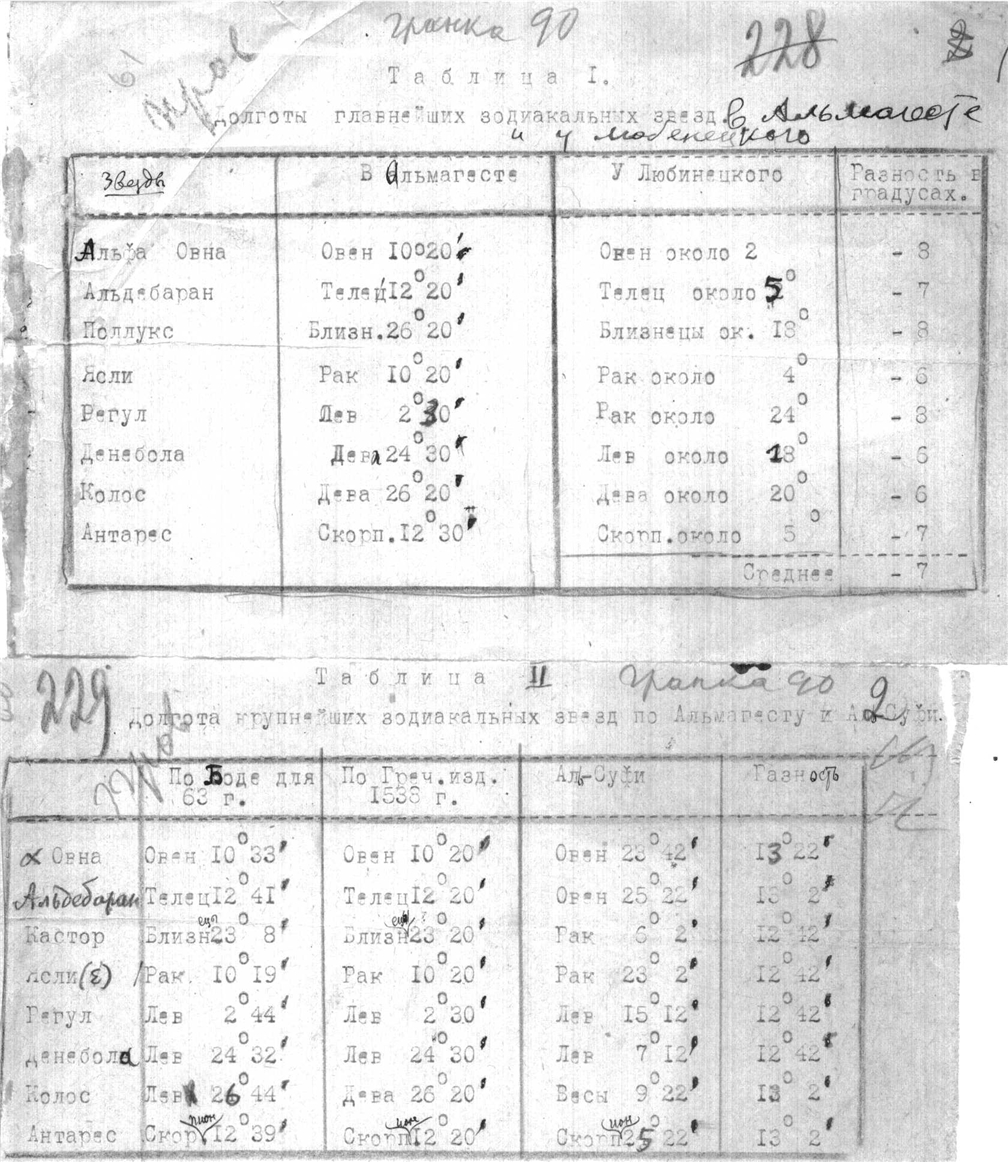 гранка 90
228
Таблица I.
Долготы главнейших зодиакальных звезд в Альмагесте
и у Любенецкого
Звезды В Альмагесте У Любинецкого Разность в
градусах.
Альфа Овна Овен 10°20' Овен около 2 - 8
Альдебаран Телец 12°20' Телец около 5° - 7
Поллукс Близн. 26°20' Близнецы ок. 18° - 8
Ясли Рак 10°20' Рак около 4° - 6
Регул Лев 2 30' Рак около 24° - 8
Денебола Дева 24°30' Лев около 18° - 6
Колос Дева 26°20' Дева около 20° - 6
Антарес Скорп. 12°30' Скорп. около 5° - 7
Среднее - 7
229
Таблица II гранка 90 2
Долгота крупнейших зодиакальных звезд по Альмагесту и Ал Суфи.
По Боде для По Греч. изд. Ал-Суфи Разность
63 г. 1538 г.
α Овна Овен 10°33' Овен 10°20' Овен 23°42' 13°22'
Альдебаран Телец 12°41' Телец 12°20' Овен 25°22' 13° 2'
Кастор Близнец 23° 8' Близнец 23°20' Рак 6° 2' 12°42'
Ясли (ε) Рак. 10°19' Рак 10°20' Рак 23° 2' 12°42'
Регул Лев 2°44' Лев 2°30' Лев 15°12' 12°42'
Денебола Лев 24°32' Лев 24°30' Лев 7°12' 12°42'
Колос Лев 26°44' Дева 26°20' Весы 9°22' 13° 2'
Антарес Скорпион 12°39' Скорпион 12°20' Скорпион 25°22' 13° 2'